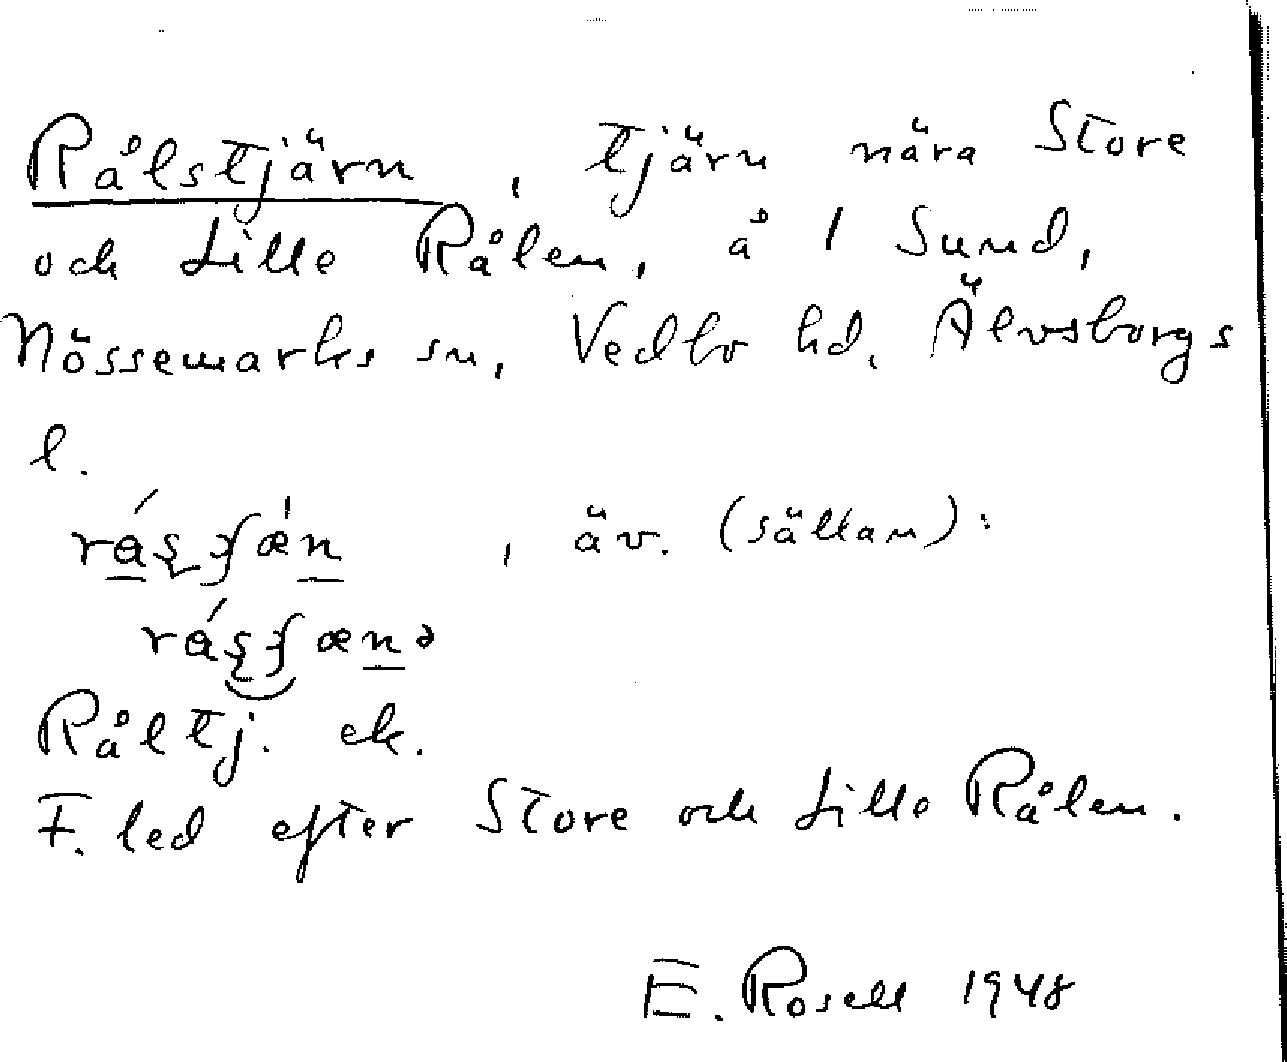 Rålstjärn, tjärn nära Store
och Lille Rålen, å 1 Sund,
Nössemarks sn, Vedbo hd. Älvsborgs
l.
, äv. (sällan):
Råltj. ek.
F. led efter Store och Lille Rålen.
E. Rosell 1948